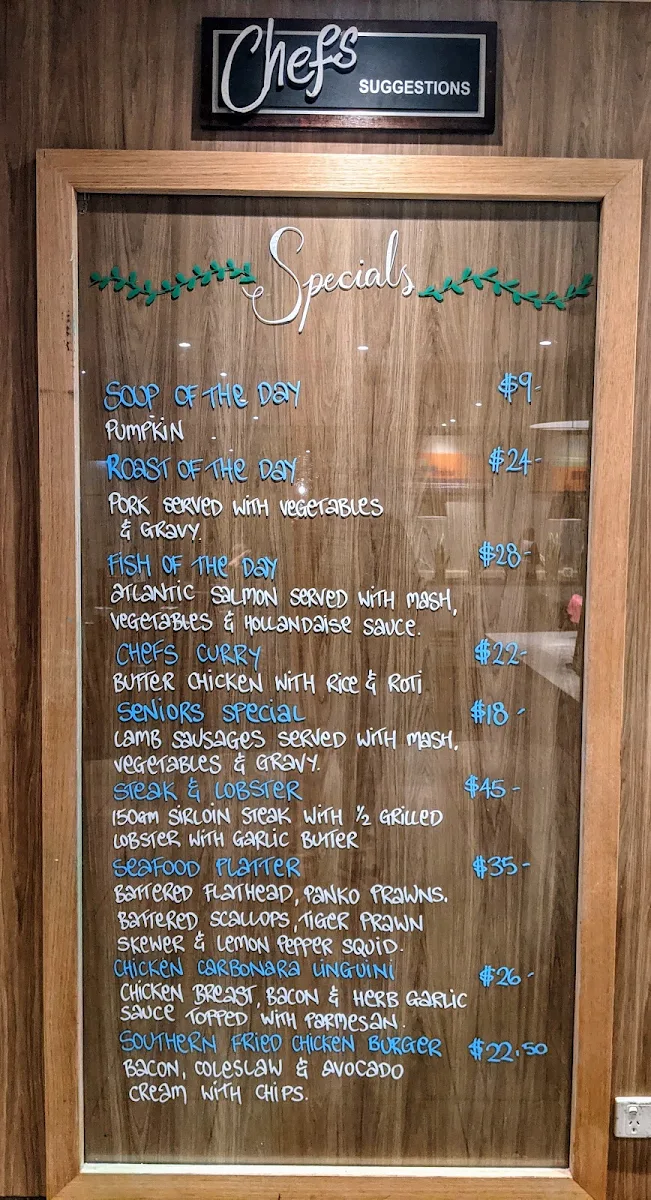 Chefs
SUGGESTIONS
Specials
SOUP OF THE DAY $9-
PUMPKIN
ROAST OF THE DAY $24-
PORK SERVED WITH VEGETABLES
& GRAVY.
FISH OF THE DAY $28-
ATLANTIC SALMON SERVED WITH MASH,
VEGETABLES & HOLLANDAISE SAUCE.
CHEFS CURRY $22-
BUTTER CHICKEN WITH RICE & ROTI
SENIORS SPECIAL $18-
LAMB SAUSAGES SERVED WITH MASH,
VEGETABLES & GRAVY.
STEAK & LOBSTER $45-
150GM SIRLOIN STEAK WITH ½ GRILLED
LOBSTER WITH GARLIC BUTTER
SEAFOOD PLATTER $35-
BATTERED FLATHEAD, PANKO PRAWNS.
BATTERED SCALLOPS, TIGER PRAWN
SKEWER & LEMON PEPPER SQUID.
CHICKEN CARBONARA LINGUINI $26-
CHICKEN BREAST, BACON & HERB GARLIC
SAUCE TOPPED WITH PARMESAN.
SOUTHERN FRIED CHICKEN BURGER $22.50
BACON, COLESLAW & AVOCADO
CREAM WITH CHIPS.